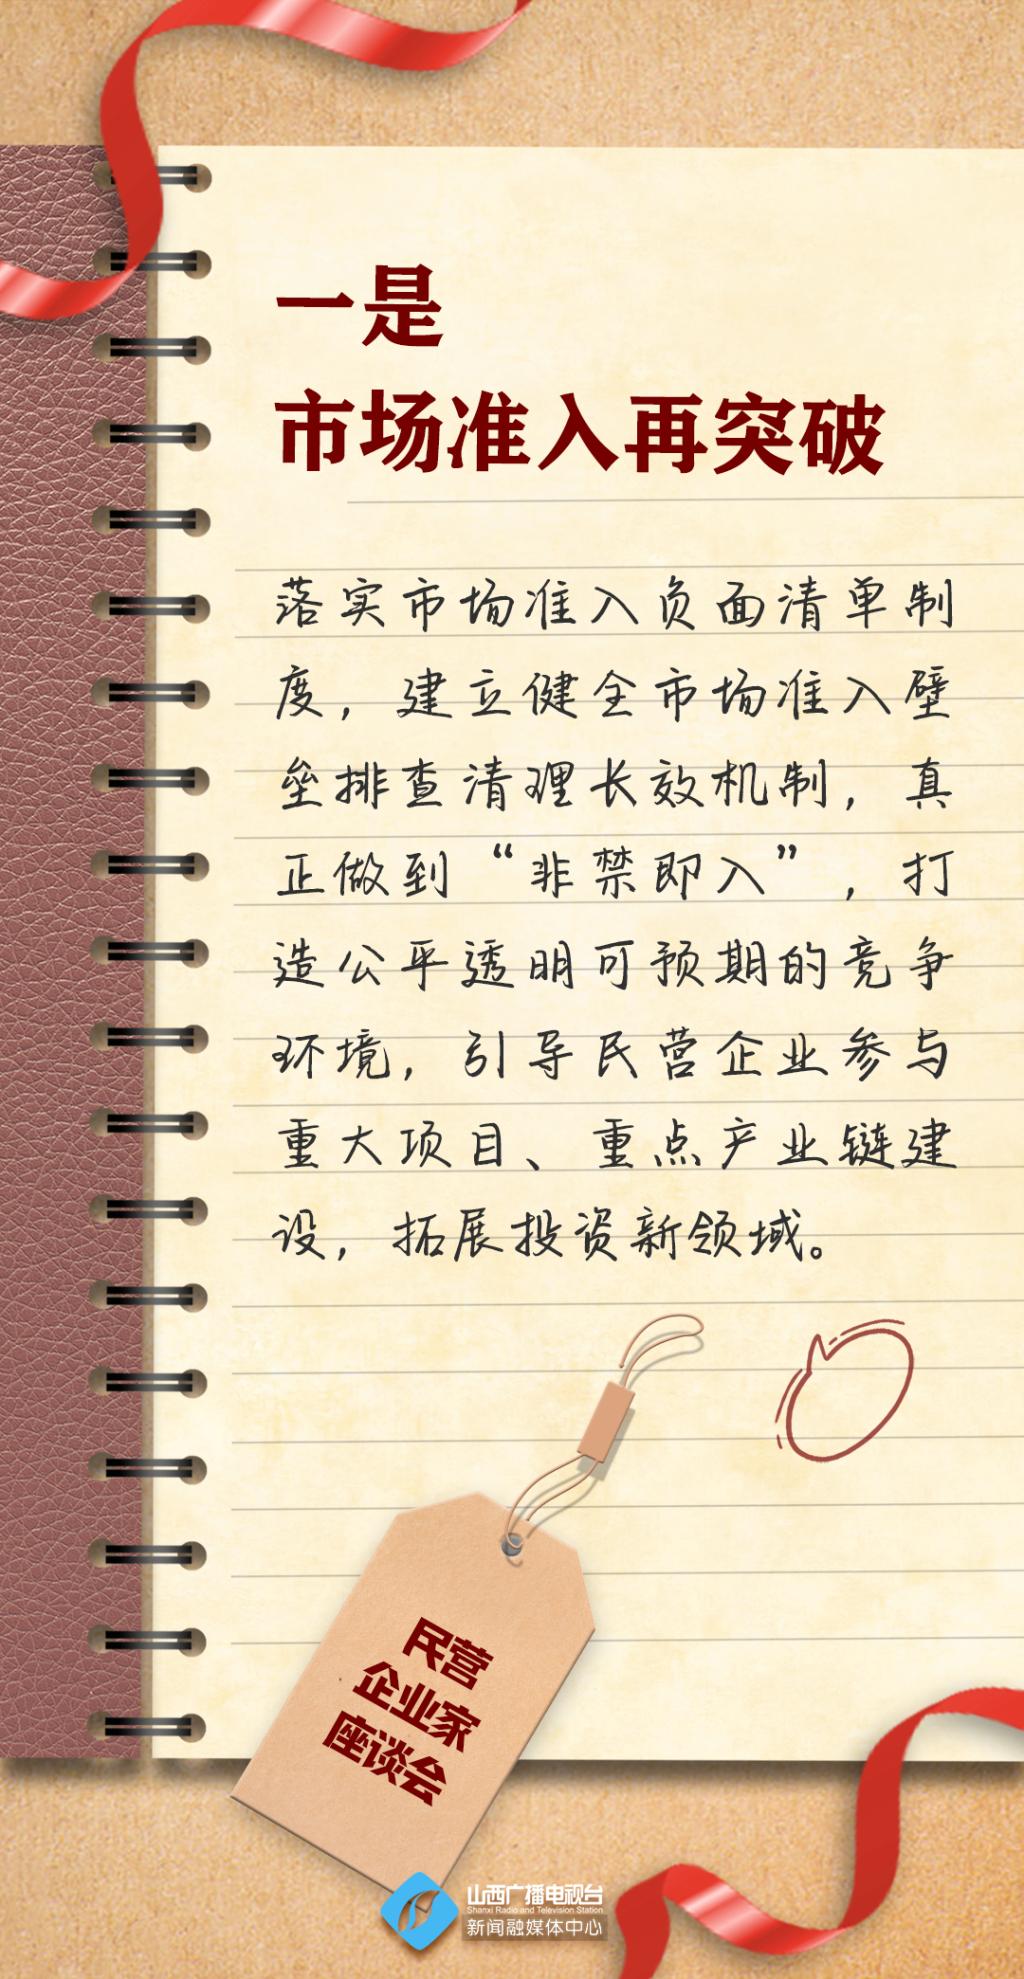 一是
市场准入再突破
落实市场准入负面清单制
度，建立健全市场准入壁
垒排查清理长效机制，真
正做到“非禁即入”，打
造公平透明可预期的竞争
环境，引导民营企业参与
重大项目、重点产业链建
设，拓展投资新领域。
民营
企业家
座谈会
山西广播电视台
Shanxi Radio and Television Station
新闻融媒体中心